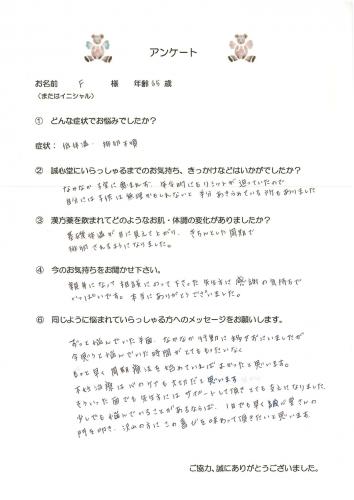 アンケート
お名前 F 様 年齢 歳
（またはイニシャル）
① どんな症状でお悩みでしたか？
症状： 低体温・排卵不順
② 誠心堂にいらっしゃるまでのお気持ち、きっかけなどはいかがでしたか？
なかなか子宝に恵まれず、年令的にもリミットが迫っていたので
自分には子供は無理かもしれないと 半分あきらめている所もありました
③ 漢方薬を飲まれてどのようなお肌・体調の変化がありましたか？
基礎体温が目に見えて上がり、きちんとした周期で
排卵されるようになりました。
④ 今のお気持ちをお聞かせ下さい。
親身になって相談にのって下さった先生方に感謝の気持ちで
いっぱいです。本当にありがとうございました。
⑥ 同じように悩まれていらっしゃる方へのメッセージをお願いします。
ずっと悩んでいた半面、なかなか行動に移せずにいましたが
今思うと悩んでいた時間がとてももったいなく
もっと早く周期療法を始めていればよかったと思います。
不妊治療は心のケアも大切だと思います
そういった面でも先生方にはサポートして頂きとても支えになりました。
少しでも悩んでいることがあるならば、1日でも早く誠心堂さんの
門を叩き、沢山の方にこの喜びを味わって頂きたいと思います
ご協力、誠にありがとうございました。